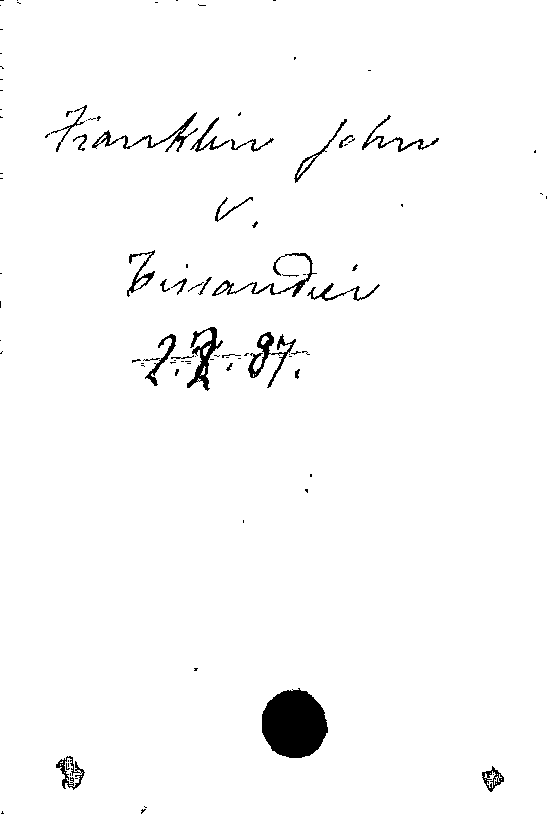 Franklin John
v.
Tissandier
2.2.87.